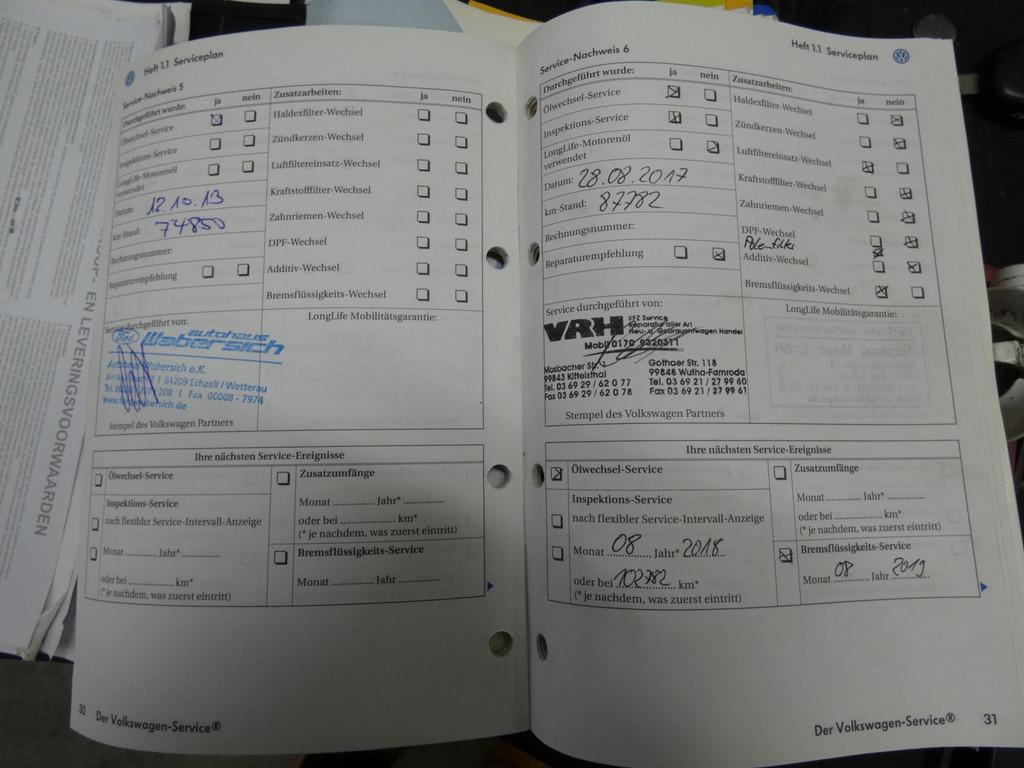 Heft 1.1 Serviceplan
Service-Nachweis 5
Durchgeführt wurde: ja nein
Ölwechsel-Service
Inspektions-Service
LongLife-Motorenöl
verwendet
Datum: 12.10.13
km-Stand: 74850
Rechnungsnummer:
Reparaturempfehlung
Zusatzarbeiten: ja nein
Haldexfilter-Wechsel
Zündkerzen-Wechsel
Luftfiltereinsatz-Wechsel
Kraftstofffilter-Wechsel
Zahnriemen-Wechsel
DPF-Wechsel
Additiv-Wechsel
Bremsflüssigkeits-Wechsel
Service durchgeführt von:
LongLife Mobilitätsgarantie:
Ford autohaus
Wabersich
Autohaus Wabersich e.K.
61209 Echzell / Wetterau
Fax 06008 - 7974
Stempel des Volkswagen Partners
Ihre nächsten Service-Ereignisse
Ölwechsel-Service
Inspektions-Service
nach flexibler Service-Intervall-Anzeige
Monat ............ Jahr* ................
oder bei ................... km*
(* je nachdem, was zuerst eintritt)
Zusatzumfänge
Monat ............. Jahr* .............
oder bei ...................... km*
(* je nachdem, was zuerst eintritt)
Bremsflüssigkeits-Service
Monat ............. Jahr .............
30 Der Volkswagen-Service®
EN LEVERINGSVOORWAARDEN
Heft 1.1 Serviceplan
Service-Nachweis 6
Durchgeführt wurde: ja nein
Ölwechsel-Service
Inspektions-Service
LongLife-Motorenöl
verwendet
Datum: 28.08.2017
km-Stand: 87782
Rechnungsnummer:
Reparaturempfehlung
Zusatzarbeiten: ja nein
Haldexfilter-Wechsel
Zündkerzen-Wechsel
Luftfiltereinsatz-Wechsel
Kraftstofffilter-Wechsel
Zahnriemen-Wechsel
DPF-Wechsel
Pollenfilter
Additiv-Wechsel
Bremsflüssigkeits-Wechsel
Service durchgeführt von:
LongLife Mobilitätsgarantie:
VRH KFZ Service
Reparatur aller Art
Neu- u. Gebrauchtwagen Handel
Mobil 0170 9320311
Mosbacher Str. 1
99843 Kittelsthal
Tel. 03 69 29 / 62 0 77
Fax 03 69 29 / 62 0 78
Gothaer Str. 118
99848 Wutha-Farnroda
Tel. 03 69 21 / 27 99 60
Fax 03 69 21 / 27 99 61
Stempel des Volkswagen Partners
Ihre nächsten Service-Ereignisse
Ölwechsel-Service
Inspektions-Service
nach flexibler Service-Intervall-Anzeige
Monat 08 Jahr* 2018
oder bei 102782 km*
(* je nachdem, was zuerst eintritt)
Zusatzumfänge
Monat ............. Jahr* .............
oder bei ...................... km*
(* je nachdem, was zuerst eintritt)
Bremsflüssigkeits-Service
Monat 08 Jahr 2019
Der Volkswagen-Service® 31